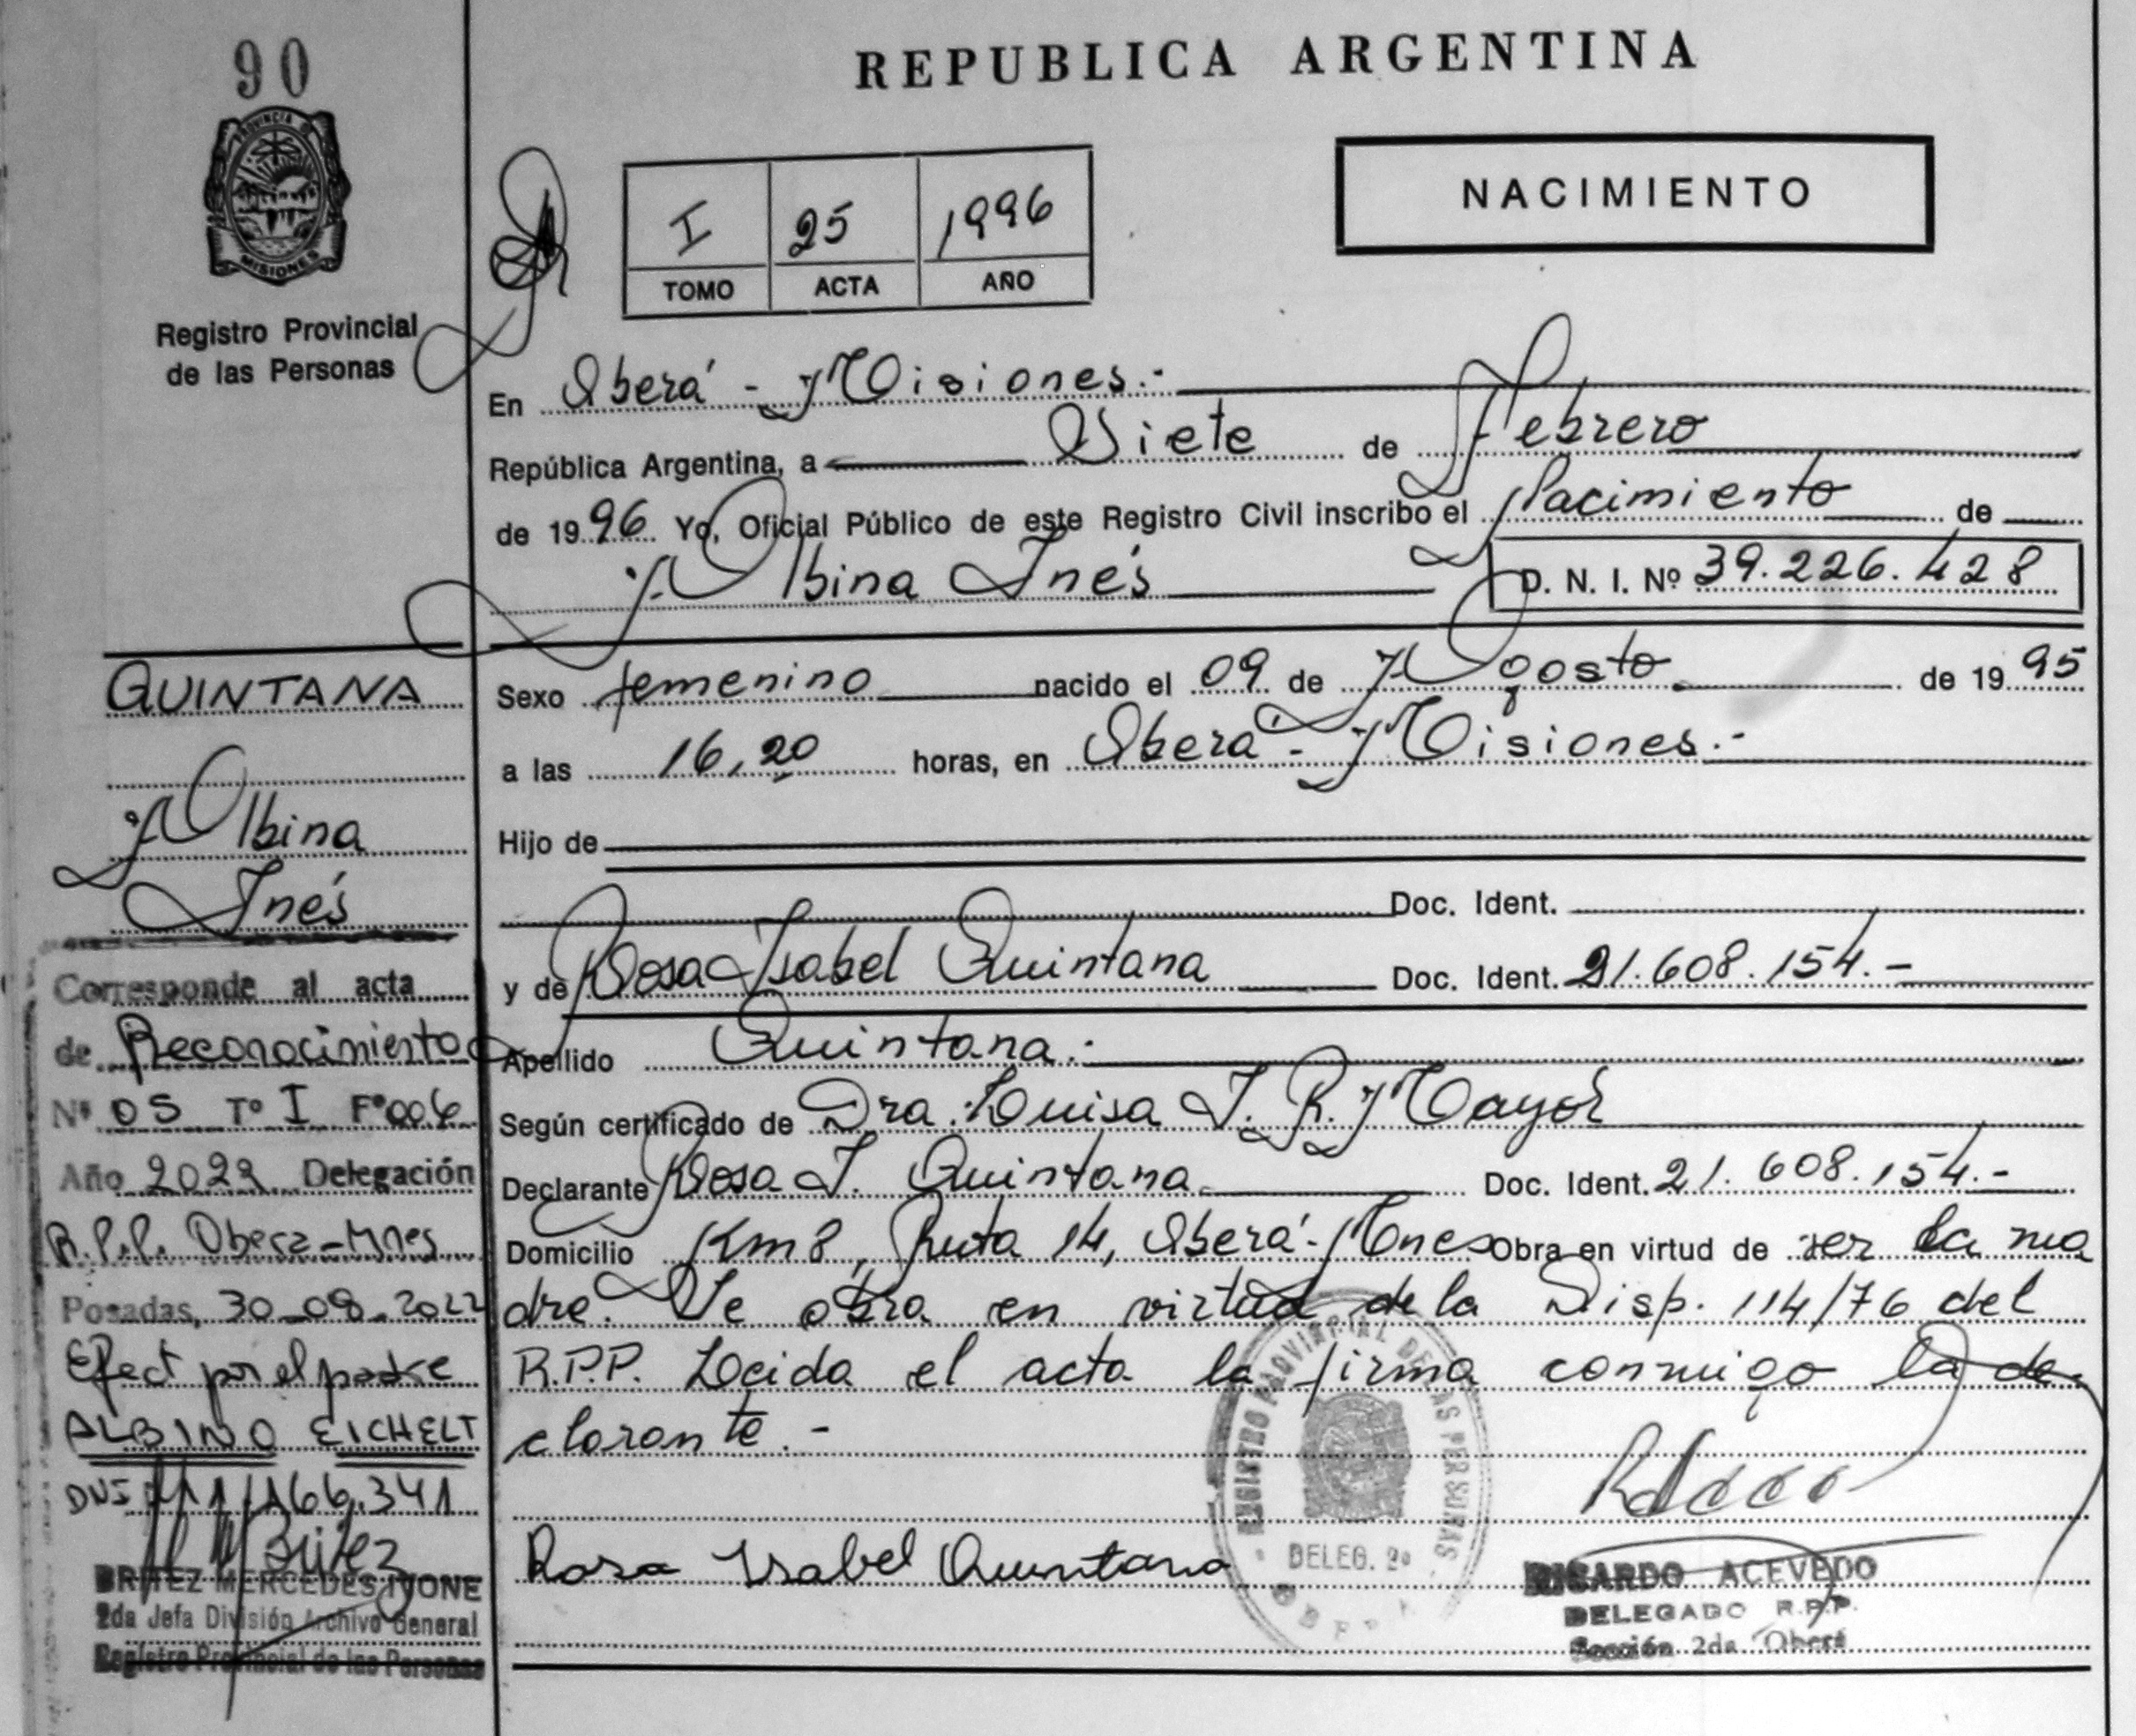 90
REPUBLICA ARGENTINA
PROVINCIA DE
MISIONES
Registro Provincial
de las Personas
I 25 1996
TOMO ACTA AÑO
NACIMIENTO
En Oberá - Misiones.-
República Argentina, a Siete de Febrero
de 1996 Yo, Oficial Público de este Registro Civil inscribo el Nacimiento de
Albina Inés
D. N. I. Nº 39.226.428
Sexo femenino nacido el 09 de Agosto de 1995
a las 16,20 horas, en Oberá - Misiones.-
Hijo de
Doc. Ident.
y de Rosa Isabel Quintana Doc. Ident. 21.608.154.-
Apellido Quintana.-
Según certificado de Dra. Luisa I. R. Mayol
Declarante Rosa I. Quintana Doc. Ident. 21.608.154.-
Domicilio Km 8, Ruta 14, Oberá - Mnes Obra en virtud de ser la ma
dre. Se obra en virtud de la Disp. 114/76 del
R.P.P. Leida el acta la firma conmigo la de
clarante.-
Rosa Isabel Quintana
REGISTRO PROVINCIAL DE LAS PERSONAS
DELEG. 2a
RICARDO ACEVEDO
DELEGADO R.P.P.
Sección 2da Oberá
QUINTANA
Albina
Inés
Corresponde al acta
de Reconocimiento
Nº 05 Tº I Fº 006
Año 2022 Delegación
R.P.P. Obera-Mnes
Posadas, 30-08-2022
Efect por el padre
ALBINO EICHELT
DNI 166.341
BRITEZ MERCEDES IVONE
2da Jefa División Archivo General
Registro Provincial de las Personas